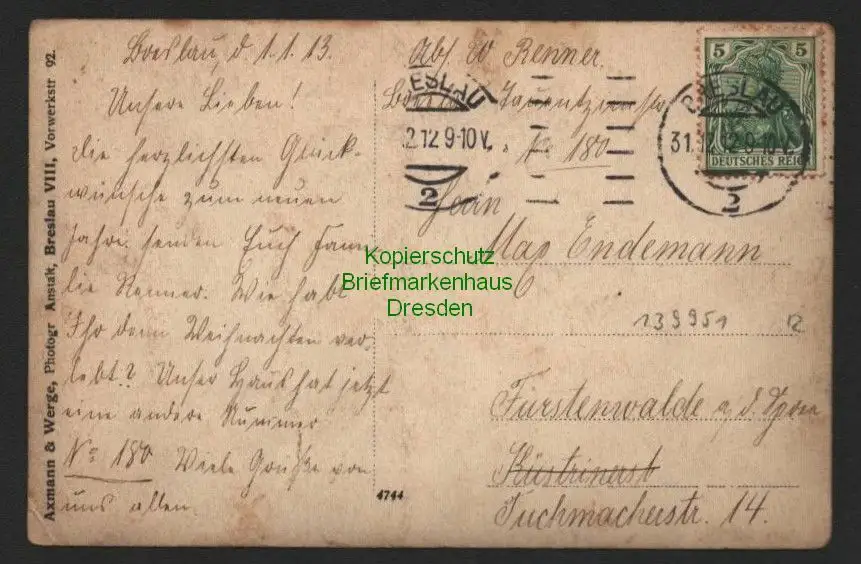 Axmann & Werge, Photogr Anstalt, Breslau VIII, Vorwerkstr 92.
Breslau, d. 1.1.13.
Unsere Lieben!
Die herzlichsten Glück-
wünsche zum neuen
Jahre senden Euch Fami
lie Renner. Wie habt
Ihr denn Weihnachten ver-
lebt? Unser Haus hat jetzt
eine andere Nummer
No 180 Viele Grüße von
uns allen.
Abs. W Renner.
Breslau Tauentzienstr
No 180
BRESLAU
.2.12.9-10V.
2
BRESLAU
31.12.12.9-10V.
2
5 5
DEUTSCHES REICH
Herrn
Max Endemann
Kopierschutz
Briefmarkenhaus
Dresden
139951
12
Fürstenwalde a. d. Spree
Küstrinerst
Tuchmacherstr. 14.
4744